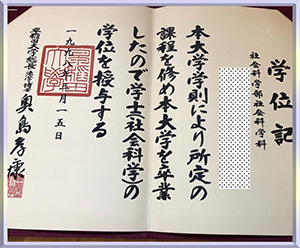 学位記
社会科学部社会科学科
本大学学則により所定の
課程を修め本大学を卒業
したので学士(社会科学)の
学位を授与する
一九九八年三月一五日
早稲田大学総長
奥島孝康